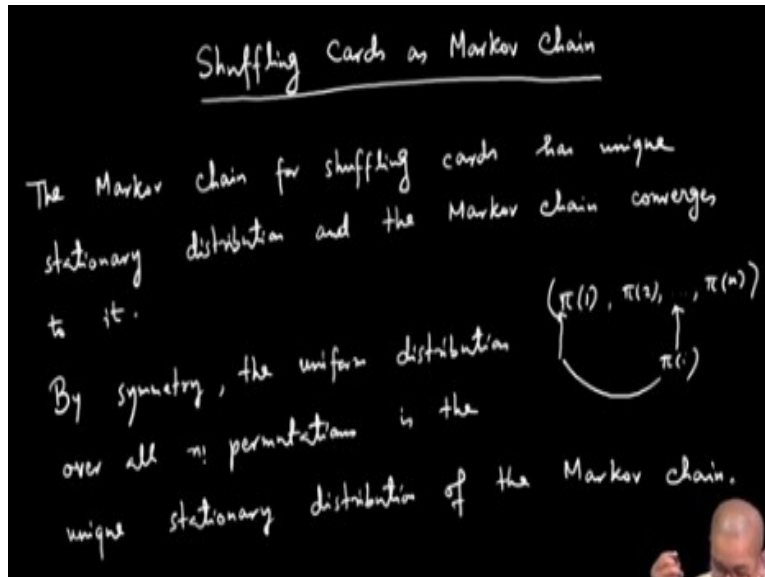 Shuffling Cards as Markov Chain
The Markov chain for shuffling cards has unique
stationary distribution and the Markov chain converges
to it.
(π(1), π(2), ..., π(n))
π(i)
By symmetry, the uniform distribution
over all n! permutations is the
unique stationary distribution of the Markov chain.